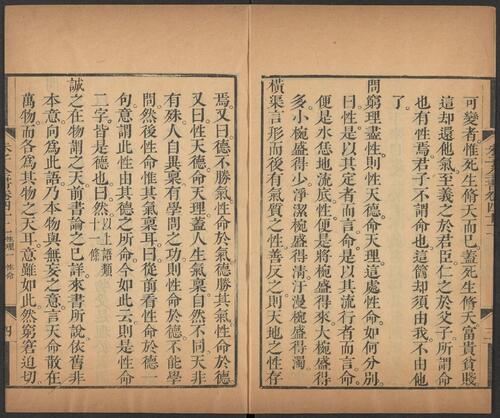 可變者惟死生脩夭而已蓋死生脩夭富貴貧賤
這却還他氣至義之於君臣仁之於父子所謂命
也有性焉君子不謂命也這箇却須由我不由他
了
問窮理盡性則性天德命天理這處性命如何分別
曰性是以其定者而言命是以其流行者而言命
便是水恁地流底性便是將椀盛得來大椀盛得
多小椀盛得少淨潔椀盛得清汙漫椀盛得濁
橫渠言形而後有氣質之性善反之則天地之性存
焉又曰德不勝氣性命於氣德勝其氣性命於德
又曰性天德命天理蓋人生氣稟自然不同天非
有殊人自異稟有學問之功則性命於德不能學
問然後性命惟其氣稟耳曰從前看性命於德一
句意謂此性由其德之所命今如此云則是性命
二字皆是德也曰然以上語類十一條
誠之在物謂之天前書論之已詳來書所說依舊非
本意向爲此語乃本物與無妄之意言天命散在
萬物而各爲其物之天耳意雖如此然窮窘迫切
性理一 性命
四